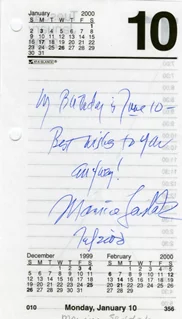 January 2000
S M T W T F S
1
2 3 4 5 6 7 8
9 10 11 12 13 14 15
16 17 18 19 20 21 22
23 24 25 26 27 28 29
30 31
10
My Birthday is June 10 –
Best wishes to you
anyway!
Maurice
December 1999
S M T W T F S
1 2 3 4
5 6 7 8 9 10 11
12 13 14 15 16 17 18
19 20 21 22 23 24 25
26 27 28 29 30 31
February 2000
S M T W T F S
1 2 3 4 5
6 7 8 9 10 11 12
13 14 15 16 17 18 19
20 21 22 23 24 25 26
27 28 29
010 Monday, January 10 356